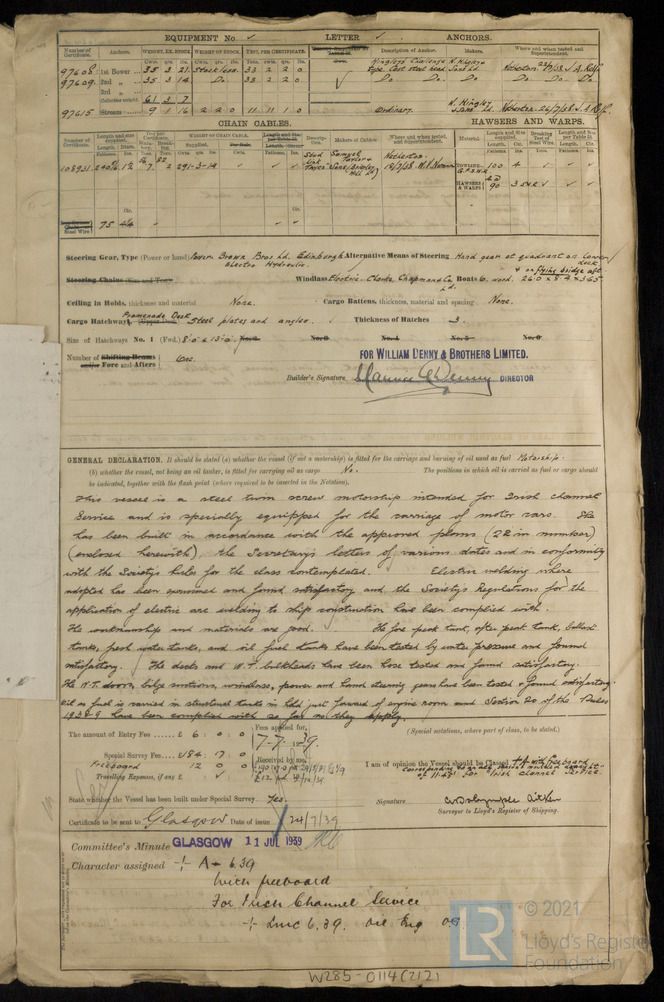 EQUIPMENT No ✓ LETTER ✓ ANCHORS.
Number of Certificate. Anchors. WEIGHT, EX. STOCK WEIGHT OF STOCK. TEST, PER CERTIFICATE. Description of Anchor. Makers. Where and when tested and Superintendent.
Cwts. qrs. lbs. Cwts. qrs. lbs. Tons. cwts. qrs. lbs.
97608 1st Bower 35 3 21 Stockless 33 2 2 0 Hingley's Challenge type Cast steel head N. Hingley & Sons Ld. Netherton
97609 2nd " 35 3 14 Do 33 2 2 0 Do. Do. Do. Do. Do.
3rd "
Collective weight 61 3 7
97615 Stream 9 1 16 2 2 0 11 11 1 0 Ordinary. N. Hingley & Sons Ld. Netherton 26/7/38
CHAIN CABLES. HAWSERS AND WARPS.
Number of Certificate. Length and size supplied. Test per Certificate. WEIGHT OF CHAIN CABLE. Description. Makers of Cables. Where and when tested, and Superintendent. Material. Length and size supplied. Breaking Test of Steel Wire. Length and Size per Table 53.
108931 240 291-3-14 Stud Link Samuel Taylor & Sons (Brierley Hill) Ld Netherton 18/7/38 TOWLINE 100 4
HAWSERS & WARPS 90
Steel Wire 75
Steering Gear, Type (Power or hand) Power Brown Bros Ld. Edinburgh Electro Hydraulic. Alternative Means of Steering Hand gear at quadrant on Lower deck
& on flying bridge aft
Steering Chains (Size and Test) Windlass Electric Clarke, Chapman & Co Ld. Boats 6. wood. 26.0 x 8.4 x 3.65
Ceiling in Holds, thickness and material None. Cargo Battens, thickness, material and spacing None.
Cargo Hatchways (Upper Deck) Promenade Deck Steel plates and angles. Thickness of Hatches 3.
Size of Hatchways No. 1 (Fwd.) 8'.0" x 13'.0" No. 2 No. 3 No. 4 No. 5 No. 6
Number of Shifting Beams and/or Fore and Afters One.
FOR WILLIAM DENNY & BROTHERS LIMITED.
Builder's Signature Maurice E Denny DIRECTOR
GENERAL DECLARATION. It should be stated (a) whether the vessel (if not a motorship) is fitted for the carriage and burning of oil used as fuel Motorship.
(b) whether the vessel, not being an oil tanker, is fitted for carrying oil as cargo No. The positions in which oil is carried as fuel or cargo should
be indicated, together with the flash point (where required to be inserted in the Notation).
This vessel is a steel twin screw motorship intended for Irish channel
Service and is specially equipped for the carriage of motor cars. She
has been built in accordance with the approved plans (22 in number)
(enclosed herewith), the Secretary's letters of various dates and in conformity
with the Society's Rules for the class contemplated. Electric welding where
adopted has been examined and found satisfactory and the Society's Regulations for the
application of electric arc welding to ship construction have been complied with.
The workmanship and materials are good. The fore peak tank, after peak tank, ballast
tanks, fresh water tanks, and oil fuel tanks have been tested by water pressure and found
satisfactory. The decks and W.T. bulkheads have been hose tested and found satisfactory.
The W.T. doors, bilge suctions, windlass, power and hand steering gears have been tested & found satisfactory.
Oil as fuel is carried in structural tanks in hold just forward of engine room and Section 20 of the Rules
1938-9 have been complied with so far as they apply.
The amount of Entry Fee £ 6 : 0 : 0 Fee applied for, 7-7-1939. (Special notations, where part of class, to be stated.)
Special Survey Fee £184 : 17 : 0 Received by me,
Freeboard 12 0 0 I am of opinion the Vessel should be Classed + A with freeboard
Travelling Expenses, if any £ : ✓ : corresponding to
of 11'-4¾" for "Irish channel Service.
State whether the Vessel has been built under Special Survey Yes. Signature Dalrymple Aitken
Surveyor to Lloyd's Register of Shipping.
Certificate to be sent to Glasgow Date of issue 24/7/39
Committee's Minute GLASGOW 11 JUL 1939
Character assigned + A 6.39
With freeboard
For Irish Channel Service
+ LMC 6.39. Oil Eng
© 2021
LR
Lloyd's Register
Foundation
W285-0114(2/2)